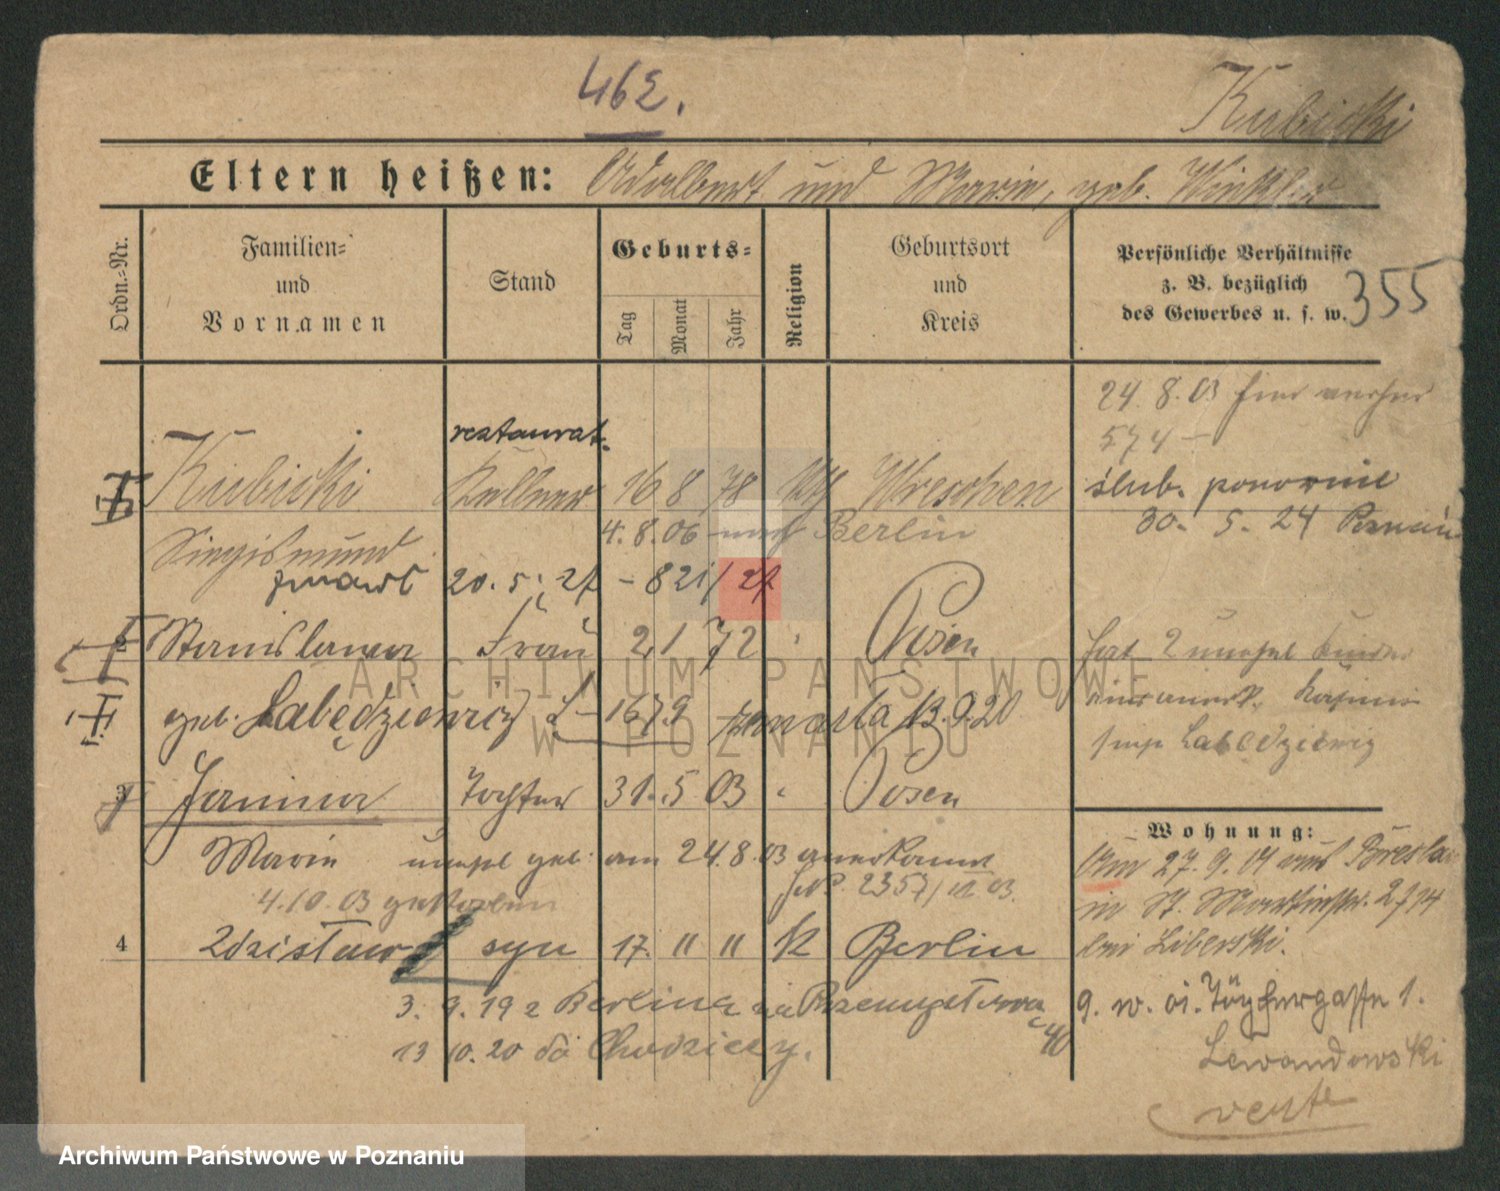 462.
Kubicki
Eltern heißen: Adalbert und Marie, geb. Winkler
Ordn.-Nr.
Familien-
und
Vornamen
Stand
Geburts-
Tag
Monat
Jahr
Religion
Geburtsort
und
Kreis
Persönliche Verhältnisse
z. B. bezüglich
des Gewerbes u. s. w.
355
24. 8. 03
574
restaurat.
Kubicki Kellner 16 8 78 kth Wreschen
ślub. ponownie
30. 5. 24 Poznań
Siegismund
4. 8. 06 nach Berlin
zmarł 20. 5. 27 - 821/27
2 Stanislawa Frau 2 1 72 " Posen
hat 2 unehel Kinder
geb. Labędziewicz 1679 zmarła 13. 9. 20
Labedziewicz
3 Janina Tochter 31. 5 03 " Posen
Wohnung:
Marie unehel geb. am 24. 8. 03 anerkannt
2357/ 03.
4. 10. 03 gestorben
Am 27. 9. 01 aus Breslau
in St. Martinstr. 27
bei Liberski.
4 Zdzisław syn 17. " " k Berlin
3. 9. 19 z Berlina na Przemysłowa
40
13 10. 20 do Chodzieży.
9. w. 01. Töpfergasse 1.
Lewandowski
verte
ARCHIWUM PAŃSTWOWE
W POZNANIU
Archiwum Państwowe w Poznaniu